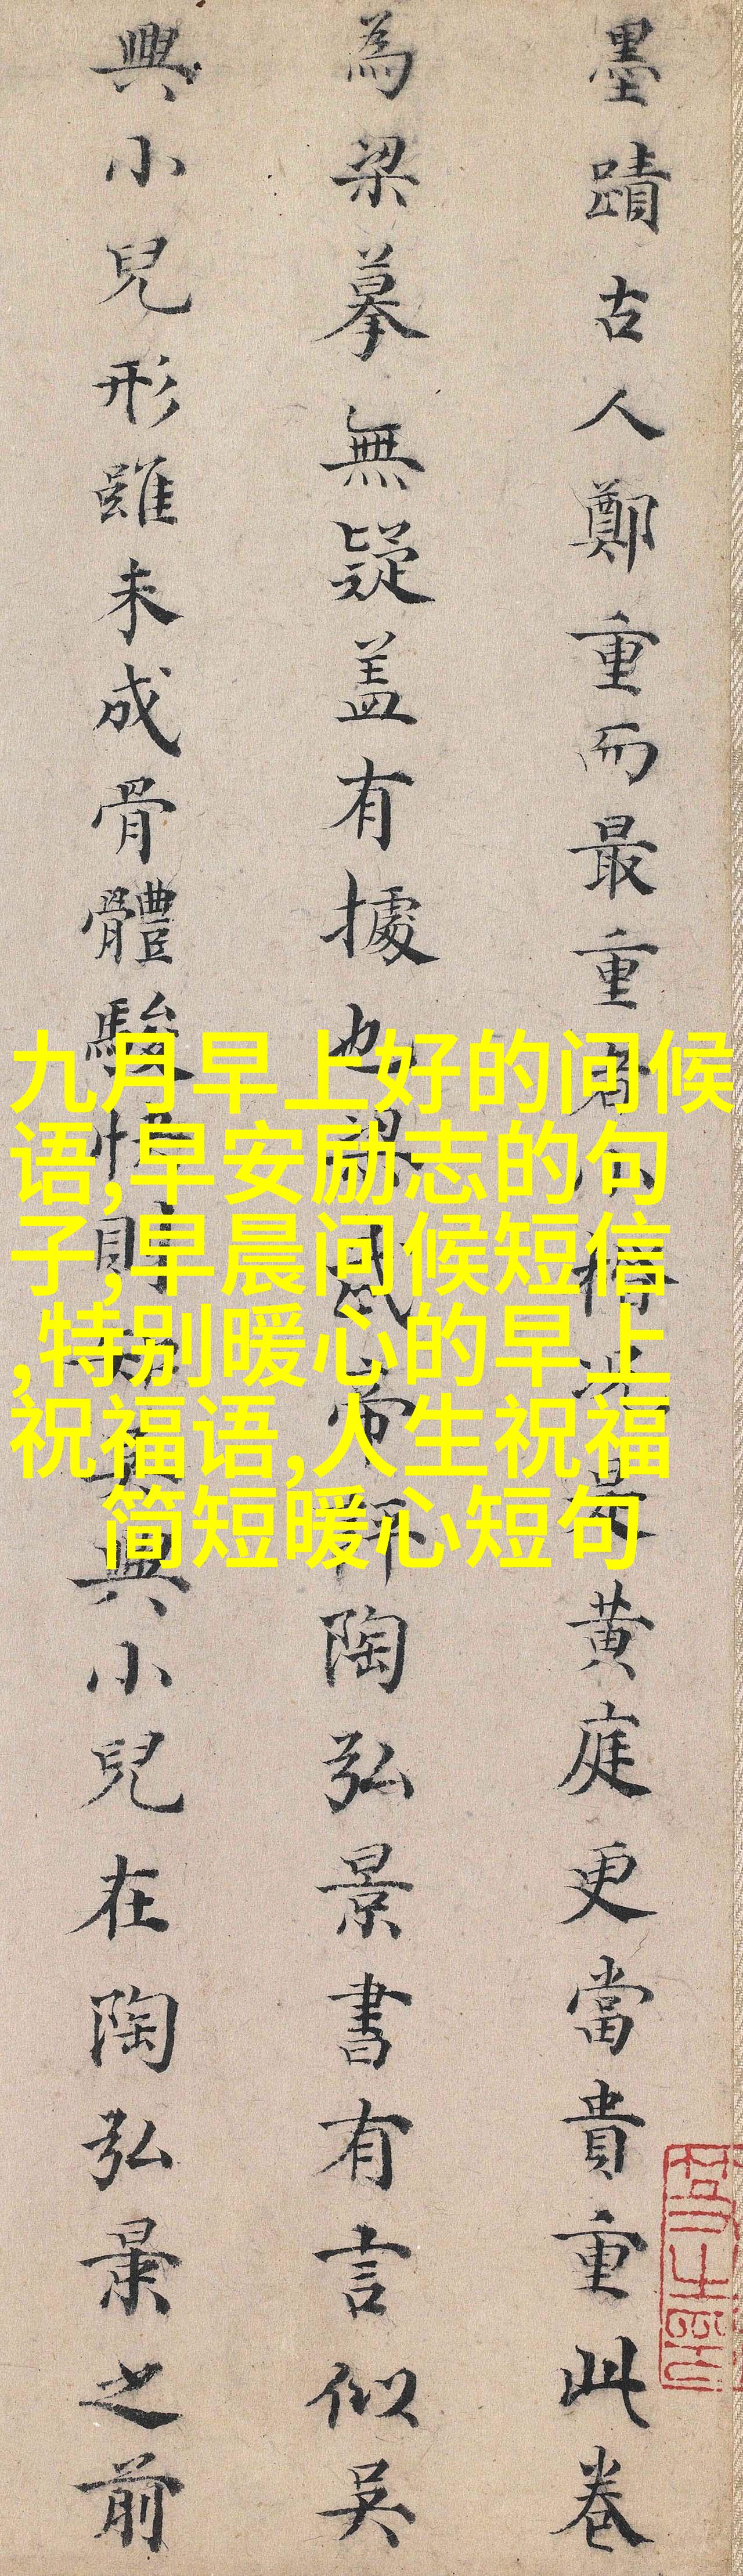 墨蹟古人鄭重而最重者小楷况是黄庭更當貴重此卷
為梁摹無疑盖有據也梁武帝評陶弘景書有言似吳
興小兒形雖未成骨體駿快則知吳興小兒在陶弘景之前
九月早上好的问候
语,早安励志的句
子,早晨问候短信
,特别暖心的早上
祝福语,人生祝福
简短暖心短句